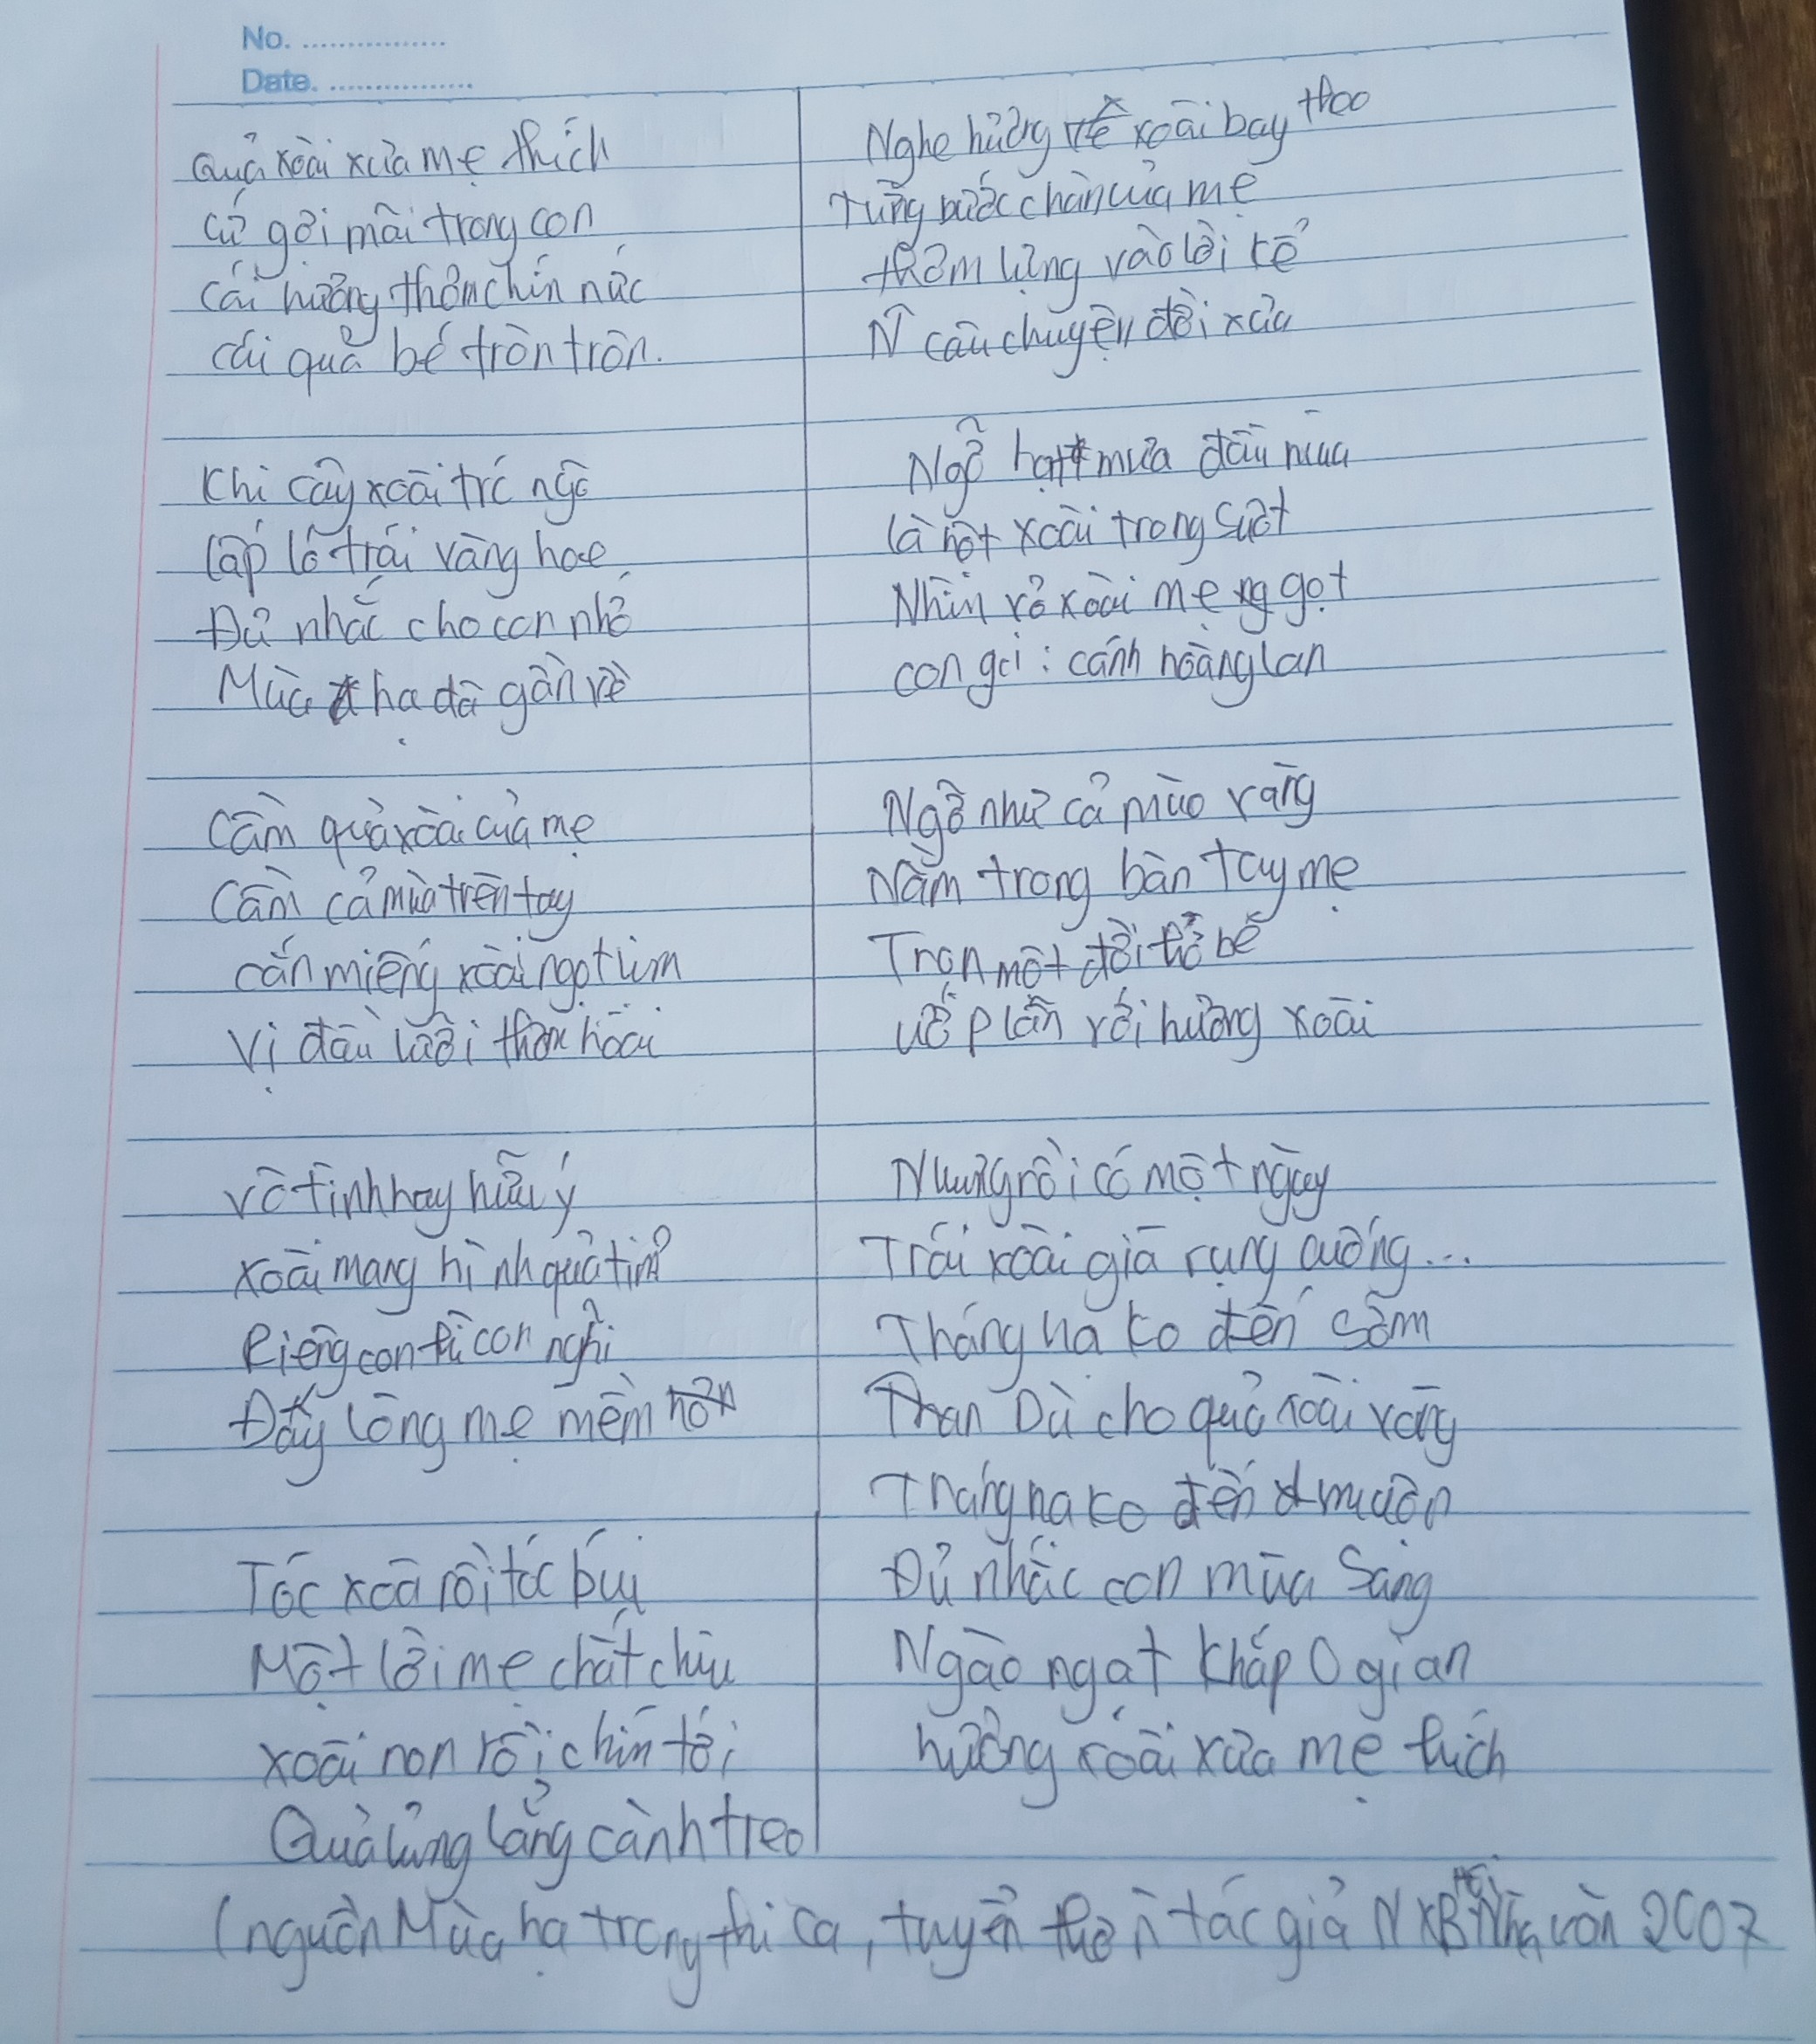 No. ................
Date. ................
Quả xoài xưa mẹ thích
Cứ gợi mãi trong con
Cái hương thơm chín nức
Cái quả bé tròn tròn.
Khi cây xoài trớ ngô
Lấp ló trái vàng hoe
Đủ nhắc cho con nhớ
Mùa hạ đã gần về
Cầm quả xoài của mẹ
Cầm cả mùa trên tay
Cắn miếng xoài ngọt lịm
Vị đầu lưỡi thơm hoài
Vô tình hay hữu ý
Xoài mang hình quả tim?
Riêng con thì con nghĩ
Đấy lòng mẹ mềm hơn
Tóc xoã rồi tóc búi
Một lời mẹ chắt chiu
Xoài non rồi chín tới
Quả lủng lẳng cành treo
Nghe hương về xoài bay theo
Từng bước chân của mẹ
Thơm lựng vào lời kể
N~ câu chuyện đời xưa
Ngỡ hạt mưa đầu mùa
là hột xoài trong suốt
Nhìn vỏ xoài mẹ ng gọt
con gọi : cánh hoàng lan
Ngỡ như cả mùa vàng
Nằm trong bàn tay mẹ
Trọn một đời thơ bé
Ướp lẫn với hương xoài
Nhưng rồi có một ngày
Trái xoài già rụng cuống...
Tháng hạ ko đến sớm
Than Dù cho quả xoài vàng
Tháng hạ ko đến muộn
Đủ nhắc con mùa sang
Ngào ngạt khắp 0 gian
hương xoài xưa mẹ thích
(nguồn Mùa hạ trong thi ca, tuyển thơ n tác giả NXB Hội Nhà văn 2007